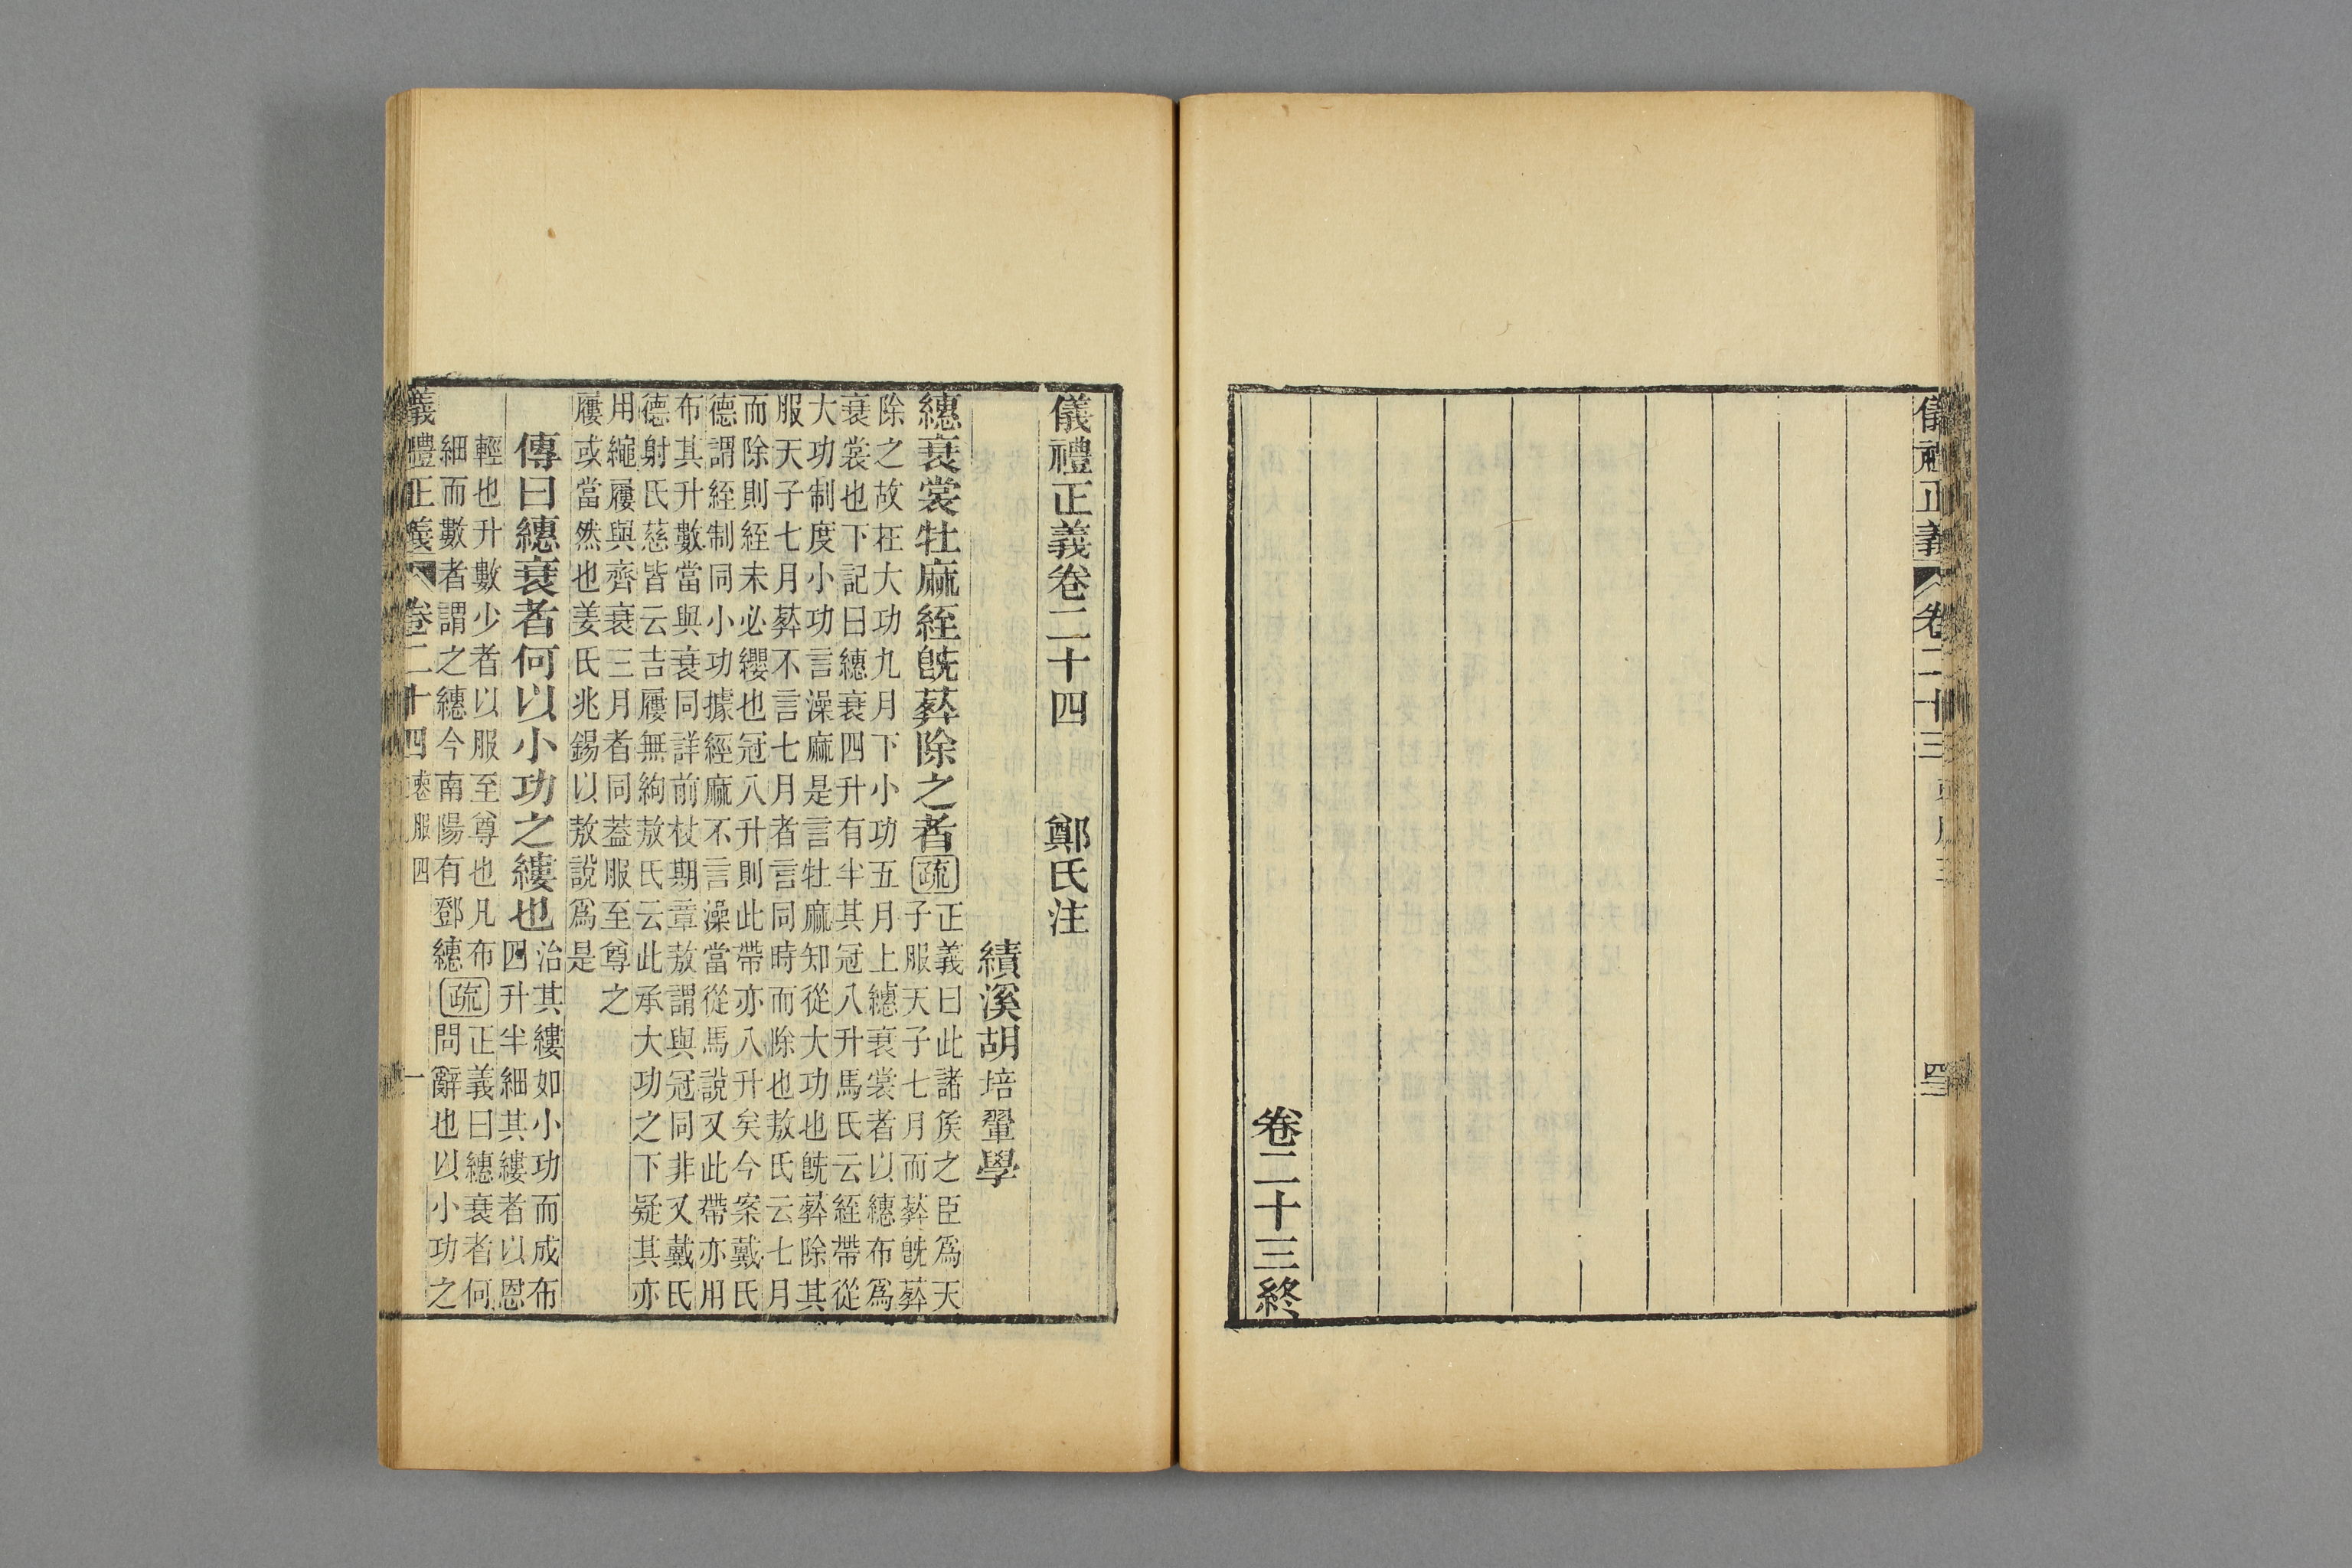 儀禮正義 卷二十三
卷二十三終
儀禮正義卷二十四 鄭氏注
績溪胡培翬學
繐衰裳牡麻絰旣葬除之者 疏 正義曰此諸矦之臣爲天
子服天子七月而葬旣葬
除之故在大功九月下小功五月上繐衰裳者以繐布爲
衰裳也下記曰繐衰四升有半其冠八升馬氏云絰帶從
大功制度小功言澡麻是言牡麻知從大功也旣葬除其
服天子七月葬不言七月者言同時而除也敖氏云七月
而除則絰未必纓也冠八升則此帶亦八升矣今案戴氏
德謂絰制同小功據經麻不言澡當從馬說又此帶亦用
布其升數當與衰同詳前杖期章敖謂與冠同非又戴氏
德射氏慈皆云吉屨無絇敖氏云此承大功之下疑其亦
用繩屨與齊衰三月者同葢服至尊之
屨或當然也姜氏兆錫以敖說爲是
傳曰繐衰者何以小功之縷也 治其縷如小功而成布
四升半細其縷者以恩
輕也升數少者以服至尊也凡布
細而數者謂之繐今南陽有鄧繐
疏 正義曰繐衰者何
問辭也以小功之
義禮正義 卷二十四 服四 一